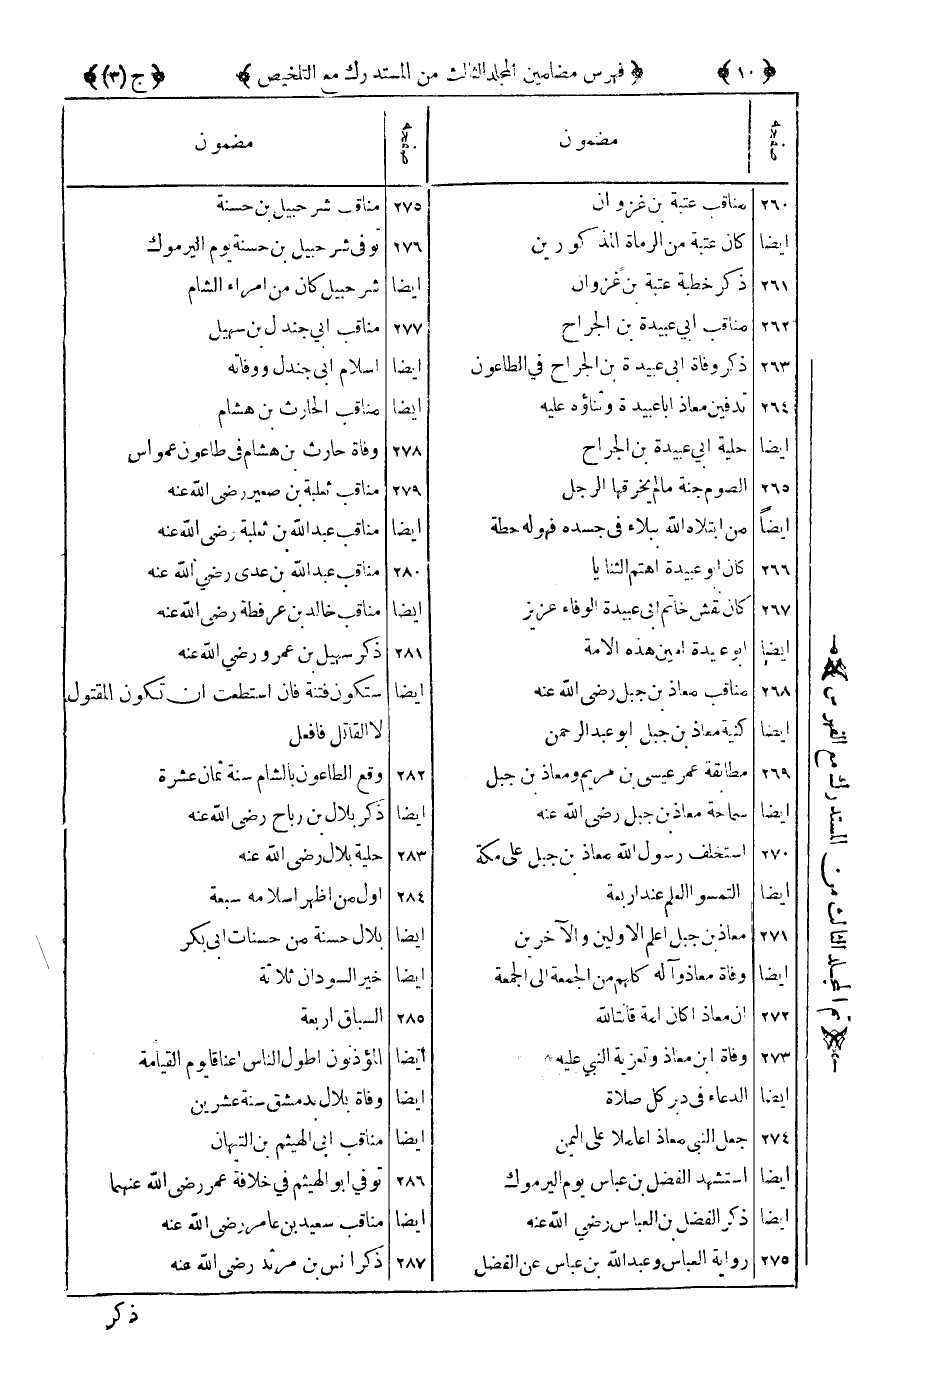 ﴿ ١٠ ﴾ ﴿ فهرس مضامين المجلد الثالث من المستدرك مع التلخيص ﴾ ﴿ ج (٣) ﴾
صفحه مضمون
٢٦٠ مناقب عتبة بن غزوان
ايضا كان عتبة من الرماة المذكورين
٢٦١ ذكر خطبة عتبة بن غزوان
٢٦٢ مناقب ابي عبيدة بن الجراح
٢٦٣ ذكر وفاة ابى عبيدة بن الجراح في الطاعون
٢٦٤ تدفين معاذ ابا عبيدة وثناؤه عليه
ايضا حلية ابي عبيدة بن الجراح
٢٦٥ الصوم جنة مالم يخرقها الرجل
ايضاً من ابتلاه الله ببلاء فى جسده فهو له حطة
٢٦٦ كان ابو عبيدة اهتم الثنايا
٢٦٧ كان نقش خاتم ابى عبيدة الوفاء عزيز
ايضا ابو عبيدة امين هذه الامة
٢٦٨ مناقب معاذ بن جبل رضى الله عنه
ايضا كنية معاذ بن جبل ابو عبد الرحمن
٢٦٩ مطابقة عمر عيسى بن مريم ومعاذ بن جبل
ايضا سماحة معاذ بن جبل رضى الله عنه
٢٧٠ استخلف رسول الله معاذ بن جبل على مكة
ايضا التمسوا العلم عند اربعة
٢٧١ معاذ بن جبل اعلم الاولين والآخرين
ايضا وفاة معاذ وآله كلهم من الجمعة الى الجمعة
٢٧٢ ان معاذا كان امة قانتا لله
٢٧٣ وفاة ابن معاذ وتعزية النبي عليه
ايضا الدعاء فى دبر كل صلاة
٢٧٤ جعل النبي معاذا عاملا على اليمن
ايضا استشهد الفضل بن عباس يوم اليرموك
ايضا ذكر الفضل بن العباس رضي الله عنه
٢٧٥ رواية العباس وعبد الله بن عباس عن الفضل
صفحه مضمون
٢٧٥ مناقب شرحبيل بن حسنة
٢٧٦ توفى شرحبيل بن حسنة يوم اليرموك
ايضا شرحبيل كان من امراء الشام
٢٧٧ مناقب ابي جندل بن سهيل
ايضا اسلام ابى جندل ووفاته
ايضا مناقب الحارث بن هشام
٢٧٨ وفاة حارث بن هشام فى طاعون عمواس
٢٧٩ مناقب ثعلبة بن صعير رضى الله عنه
ايضا مناقب عبد الله بن ثعلبة رضى الله عنه
٢٨٠ مناقب عبد الله بن عدى رضي الله عنه
ايضا مناقب خالد بن عرفطة رضى الله عنه
٢٨١ ذكر سهيل بن عمرو رضي الله عنه
ايضا ستكون فتنة فان استطعت ان تكون المقتول
لا القاتل فافعل
٢٨٢ وقع الطاعون بالشام سنة ثمان عشرة
ايضا ذكر بلال بن رباح رضى الله عنه
٢٨٣ حلية بلال رضى الله عنه
٢٨٤ اول من اظهر اسلامه سبعة
ايضا بلال حسنة من حسنات ابى بكر
ايضا خير السودان ثلاثة
٢٨٥ السباق اربعة
ايضا المؤذنون اطول الناس اعناقا يوم القيامة
ايضا وفاة بلال بدمشق سنة عشرين
ايضا مناقب ابى الهيثم بن التيهان
٢٨٦ توفي ابو الهيثم في خلافة عمر رضى الله عنهما
ايضا مناقب سعيد بن عامر رضى الله عنه
٢٨٧ ذكر انس بن مرثد رضى الله عنه
ذكر
تم المجلد الثالث من المستدرك مع الفهرس